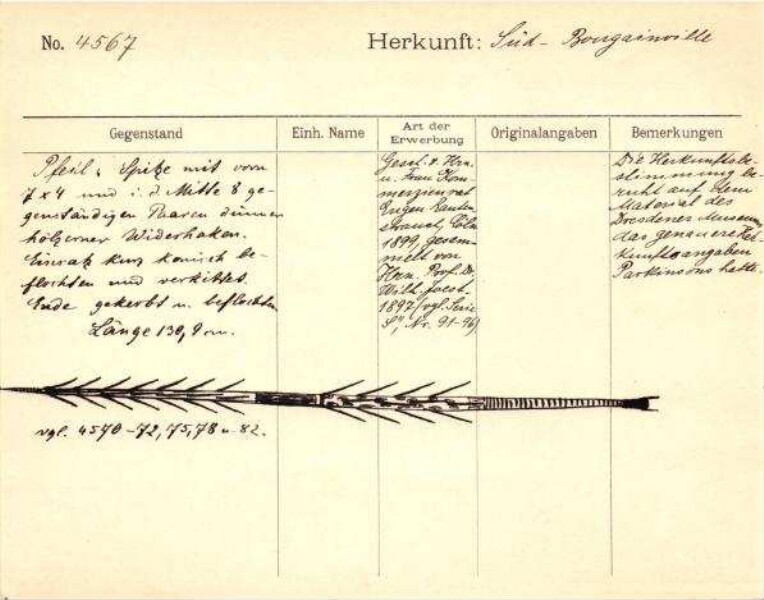 No. 4567
Herkunft: Süd-Bougainville
Gegenstand
Einh. Name
Art der
Erwerbung
Originalangaben
Bemerkungen
Pfeil; Spitze mit vorn
7 x 4 und i. d. Mitte 8 ge-
genständigen Paaren dünner
hölzerner Widerhaken.
Einsatz kurz konisch be-
flochten und verkittet.
Ende gekerbt u. beflochten
Länge 130,9 cm.
Gesch. v. Hrn.
u. Frau Kom-
merzienrat
Eugen Rauten-
strauch, Cöln
1899, gesam-
melt von
Hrn. Prof. Dr.
Wilh. Joest
1897 (vgl. Serie
Nr. 91-96)
Die Herkunftsbe-
stimmung be-
ruht auf dem
Material des
Dresdener Museums,
das genauere Her-
kunftsangaben
Parkinsons hatte.
vgl. 4570-72, 75, 78 u. 82.